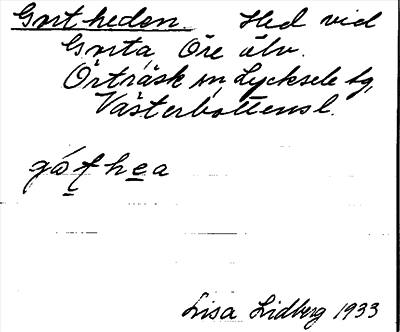 Gortheden Hed vid
Gorta, Öre älv.
Örträsk sn, Lycksele tg,
Västerbottensl.
gó̱ṯhe̱a
Lisa Lidberg 1933